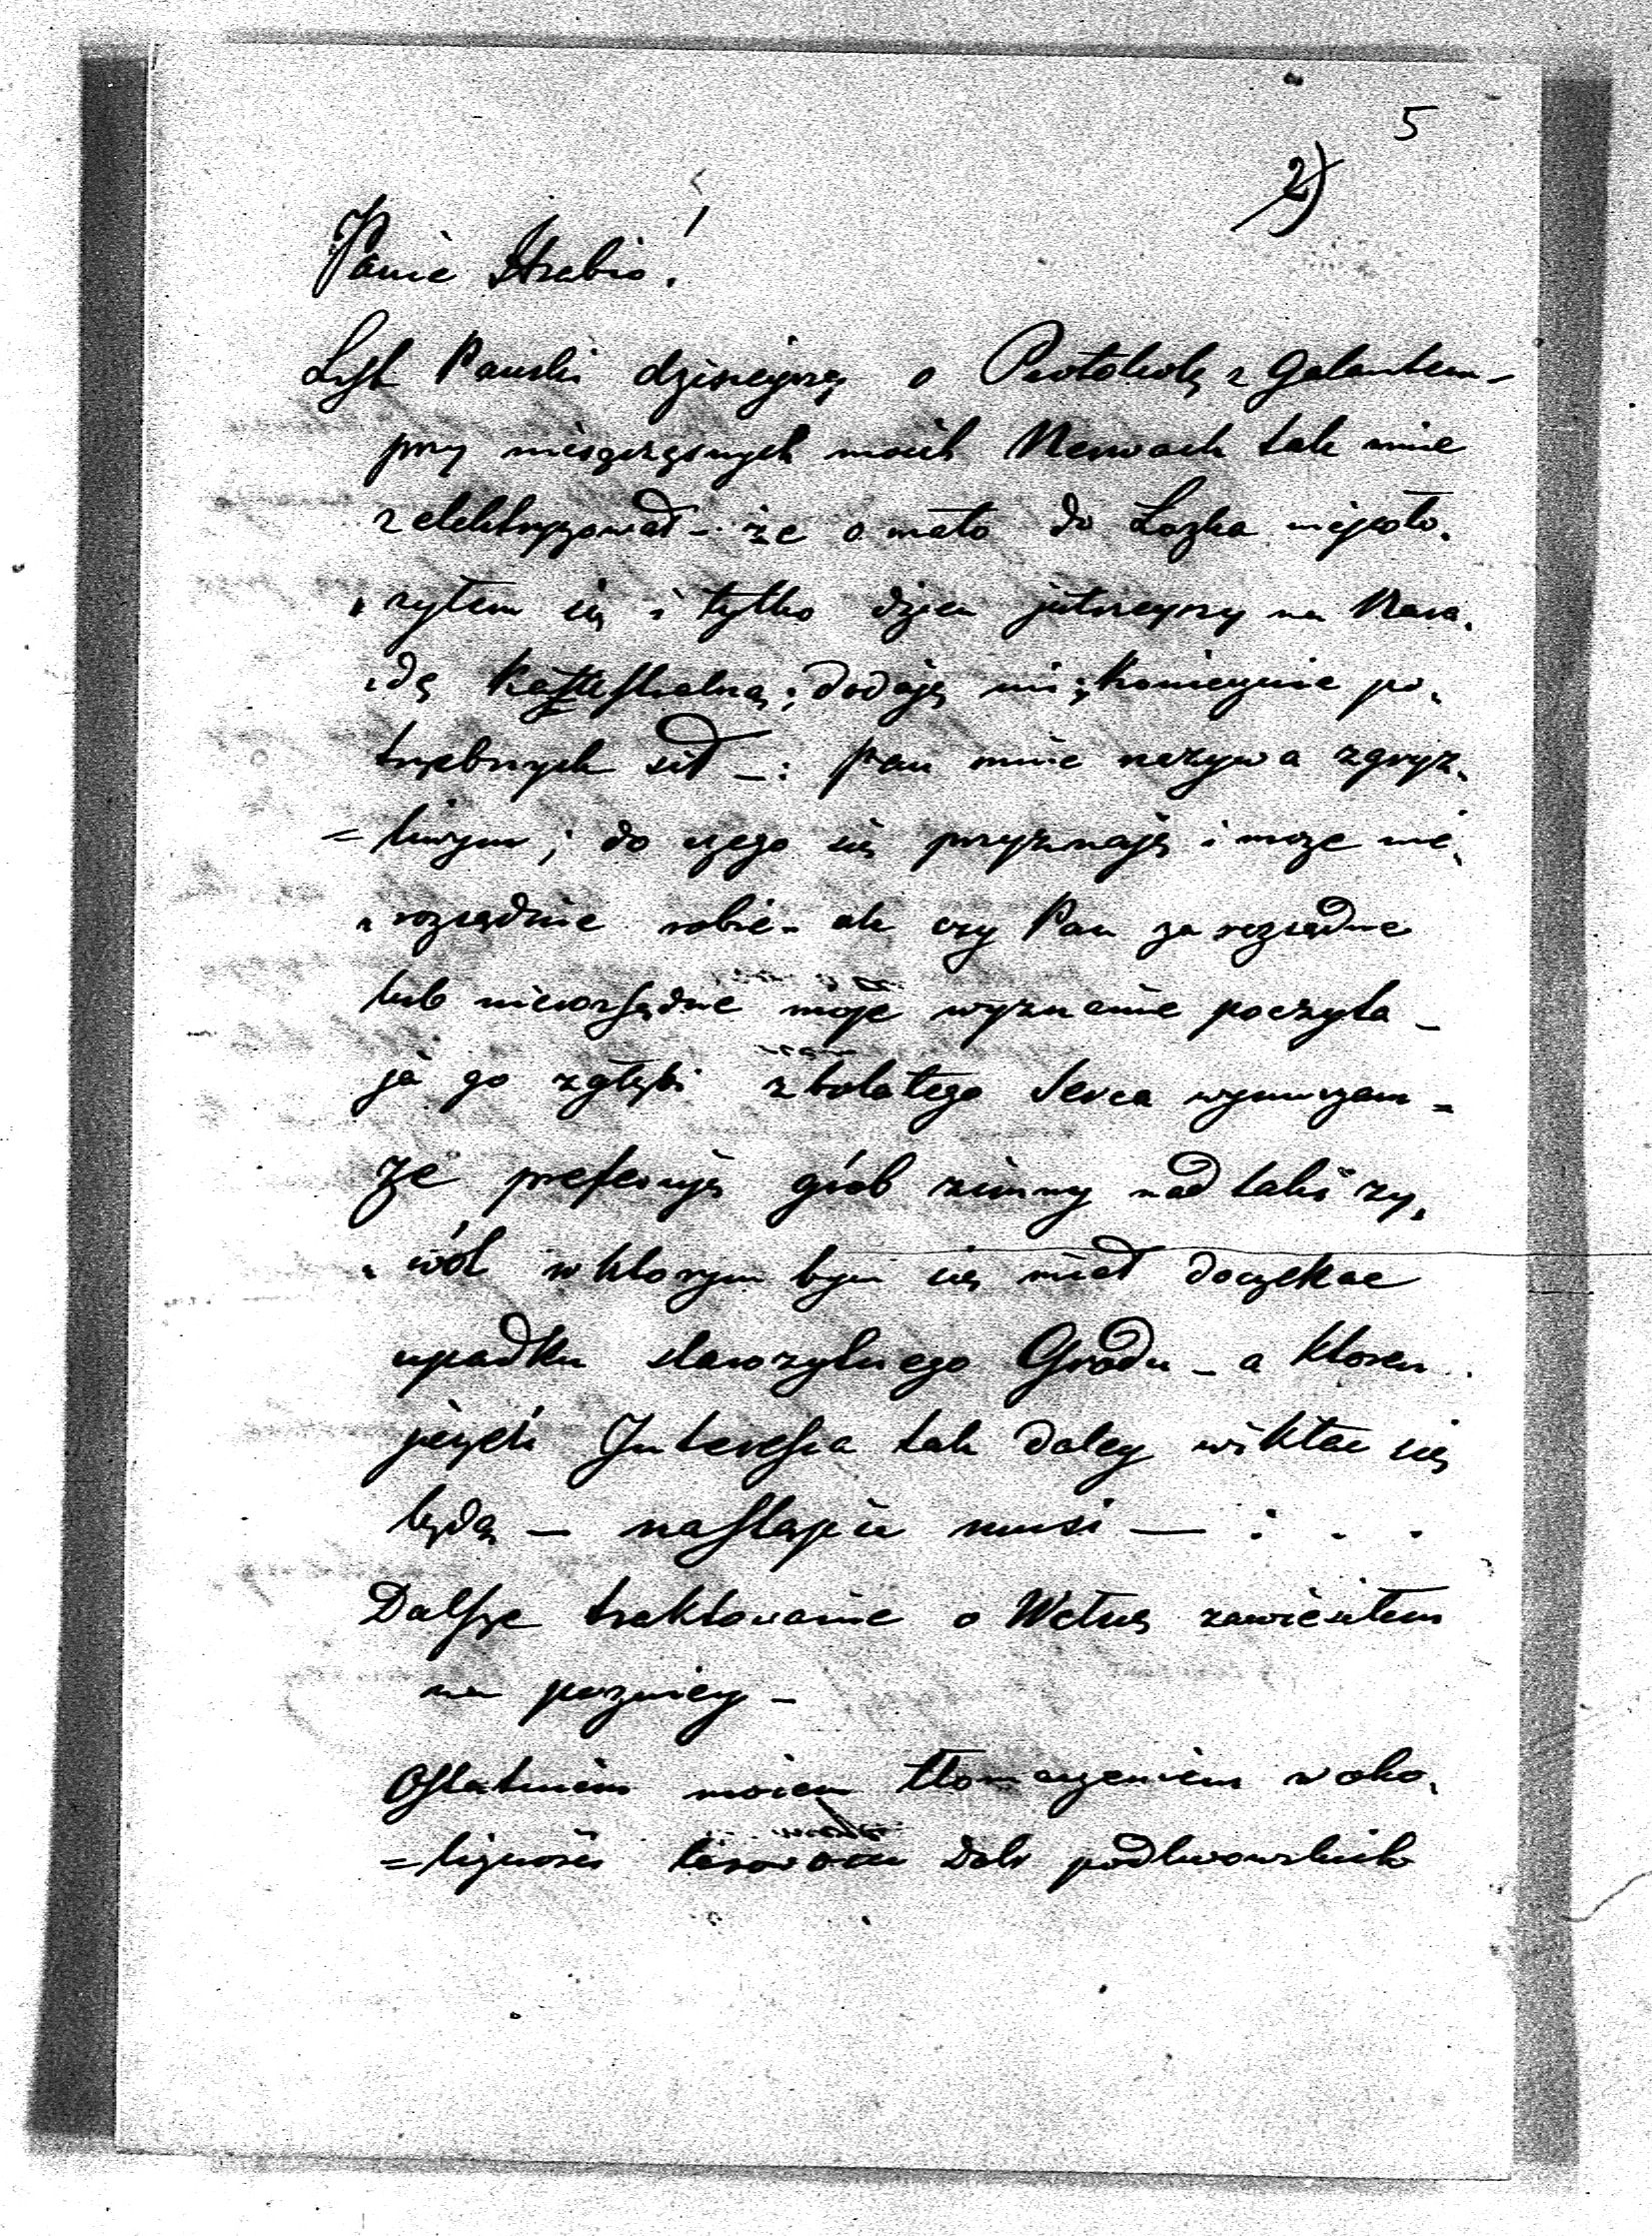 5
2)
Panie Hrabio!
List Panski dzisieyszy o Protokole z Galantem –
przy niesczęsnych moich Nerwach tak mnie
zelektryzował – że o mało do Łozka niepoło„
„zyłem się i tylko dzien jutrzeyszy na Nara„
„dę Kastestralną; dodaję mi Koniecznie po„
trzebnych sił –: Pan mnie nazywa zgryz„
=liwym; do czego się przyznaję i moze nie„
„rozsądnie robie – ale czy Pan za rozsądne
lub nierozsądne moje wyznanie poczyta –
ja go zgłębi zbolałego Serca wynurzam –
ze preferuję grób zimny nad takiś zy„
„wot w ktorym bym się miał doczekac
upadku starozytnego Grodu – a ktoren
jezeli Interessa tak daley wikłac się
będą – nastąpic musi — : . .
Dalsze traktowanie o Wełnę zawiesiłem
na pozniey –
Ostatniem moiem tłomaczeniem w oko„
=licznosci Dobr podlwowskich